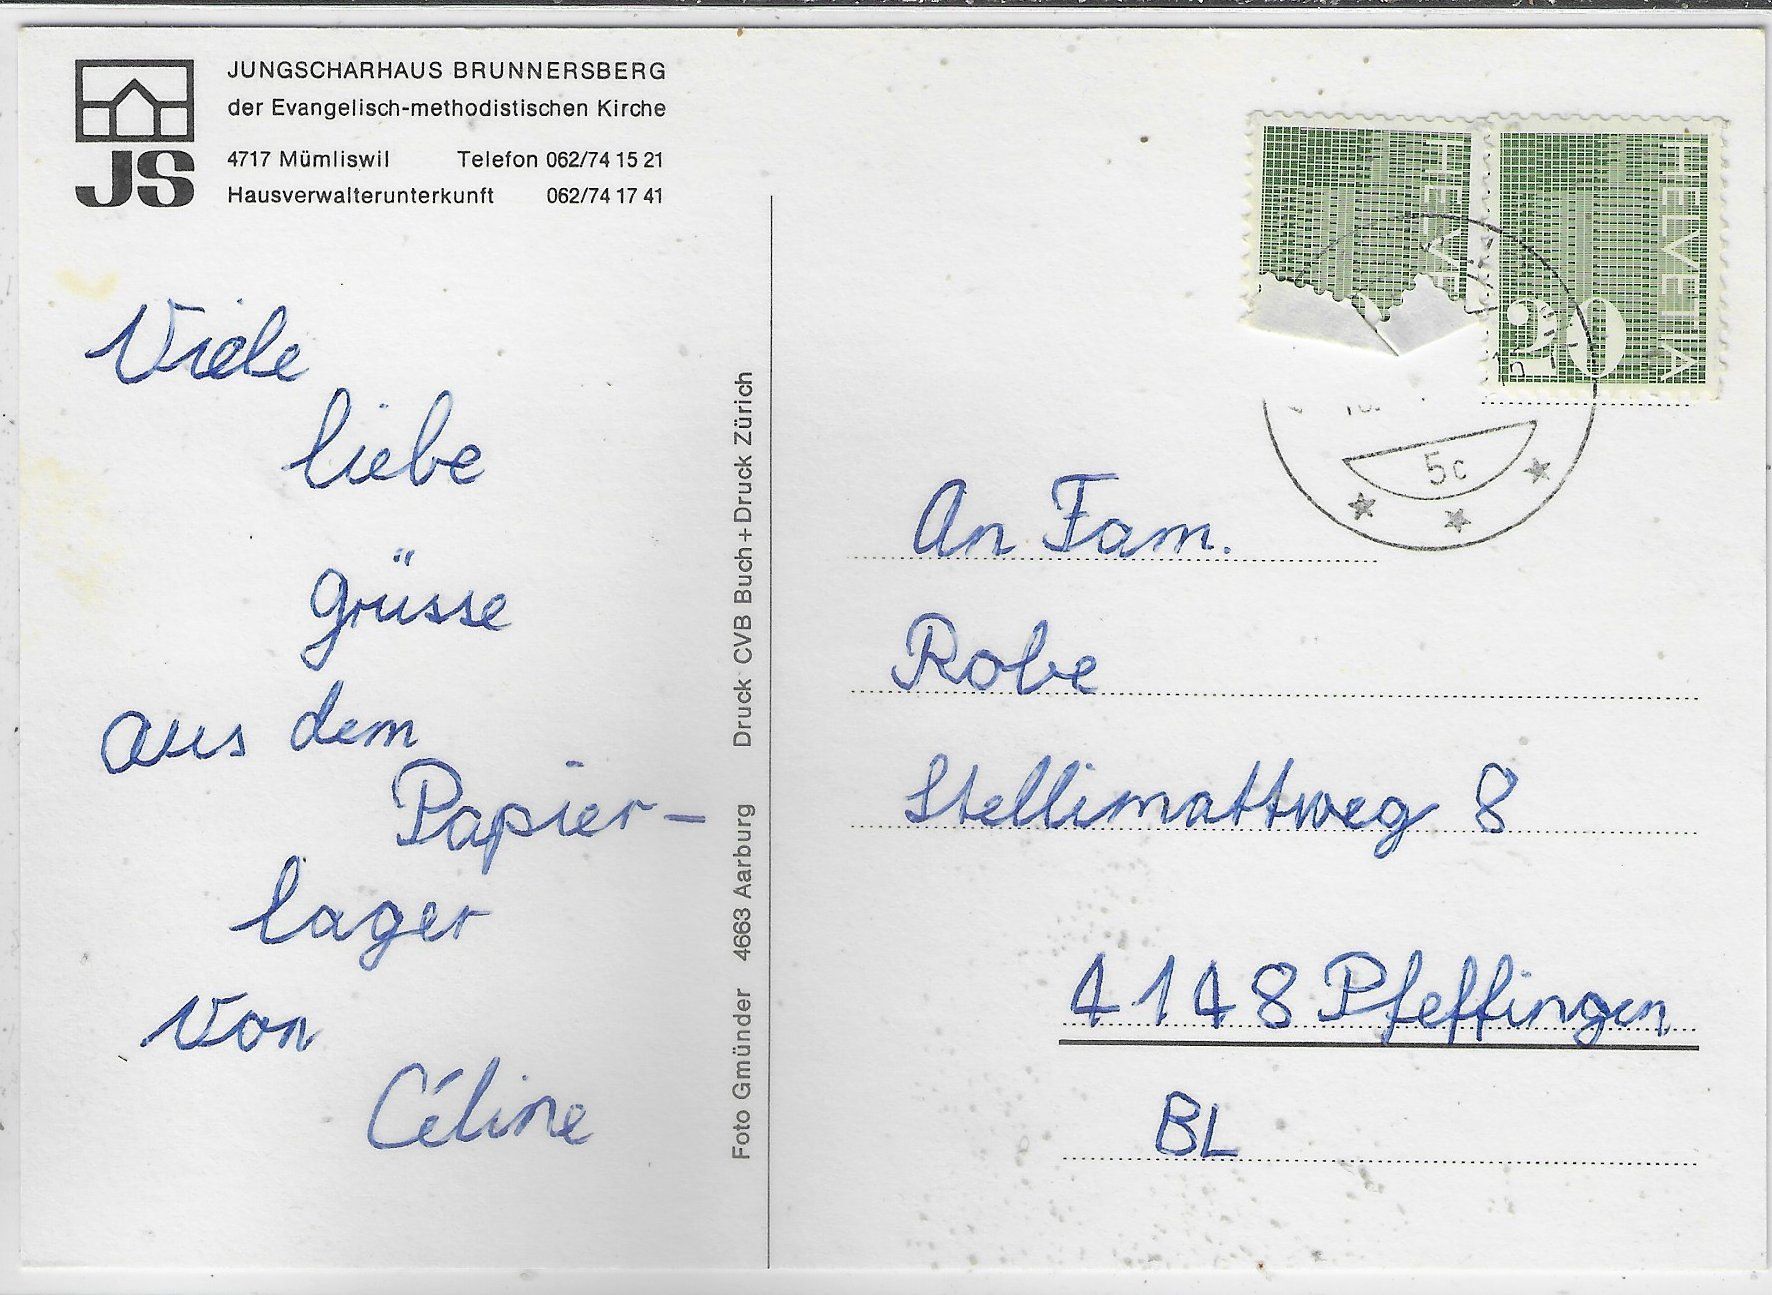 JS
JUNGSCHARHAUS BRUNNERSBERG
der Evangelisch-methodistischen Kirche
4717 Mümliswil Telefon 062/74 15 21
Hausverwalterunterkunft 062/74 17 41
Viele
liebe
Grüsse
aus dem
Papier-
lager
von
Céline
Foto Gmünder 4663 Aarburg Druck CVB Buch+Druck Zürich
HELVE
HELVETIA
20
5c
An Fam.
Robe
Stellimattweg 8
4148 Pfeffingen
BL